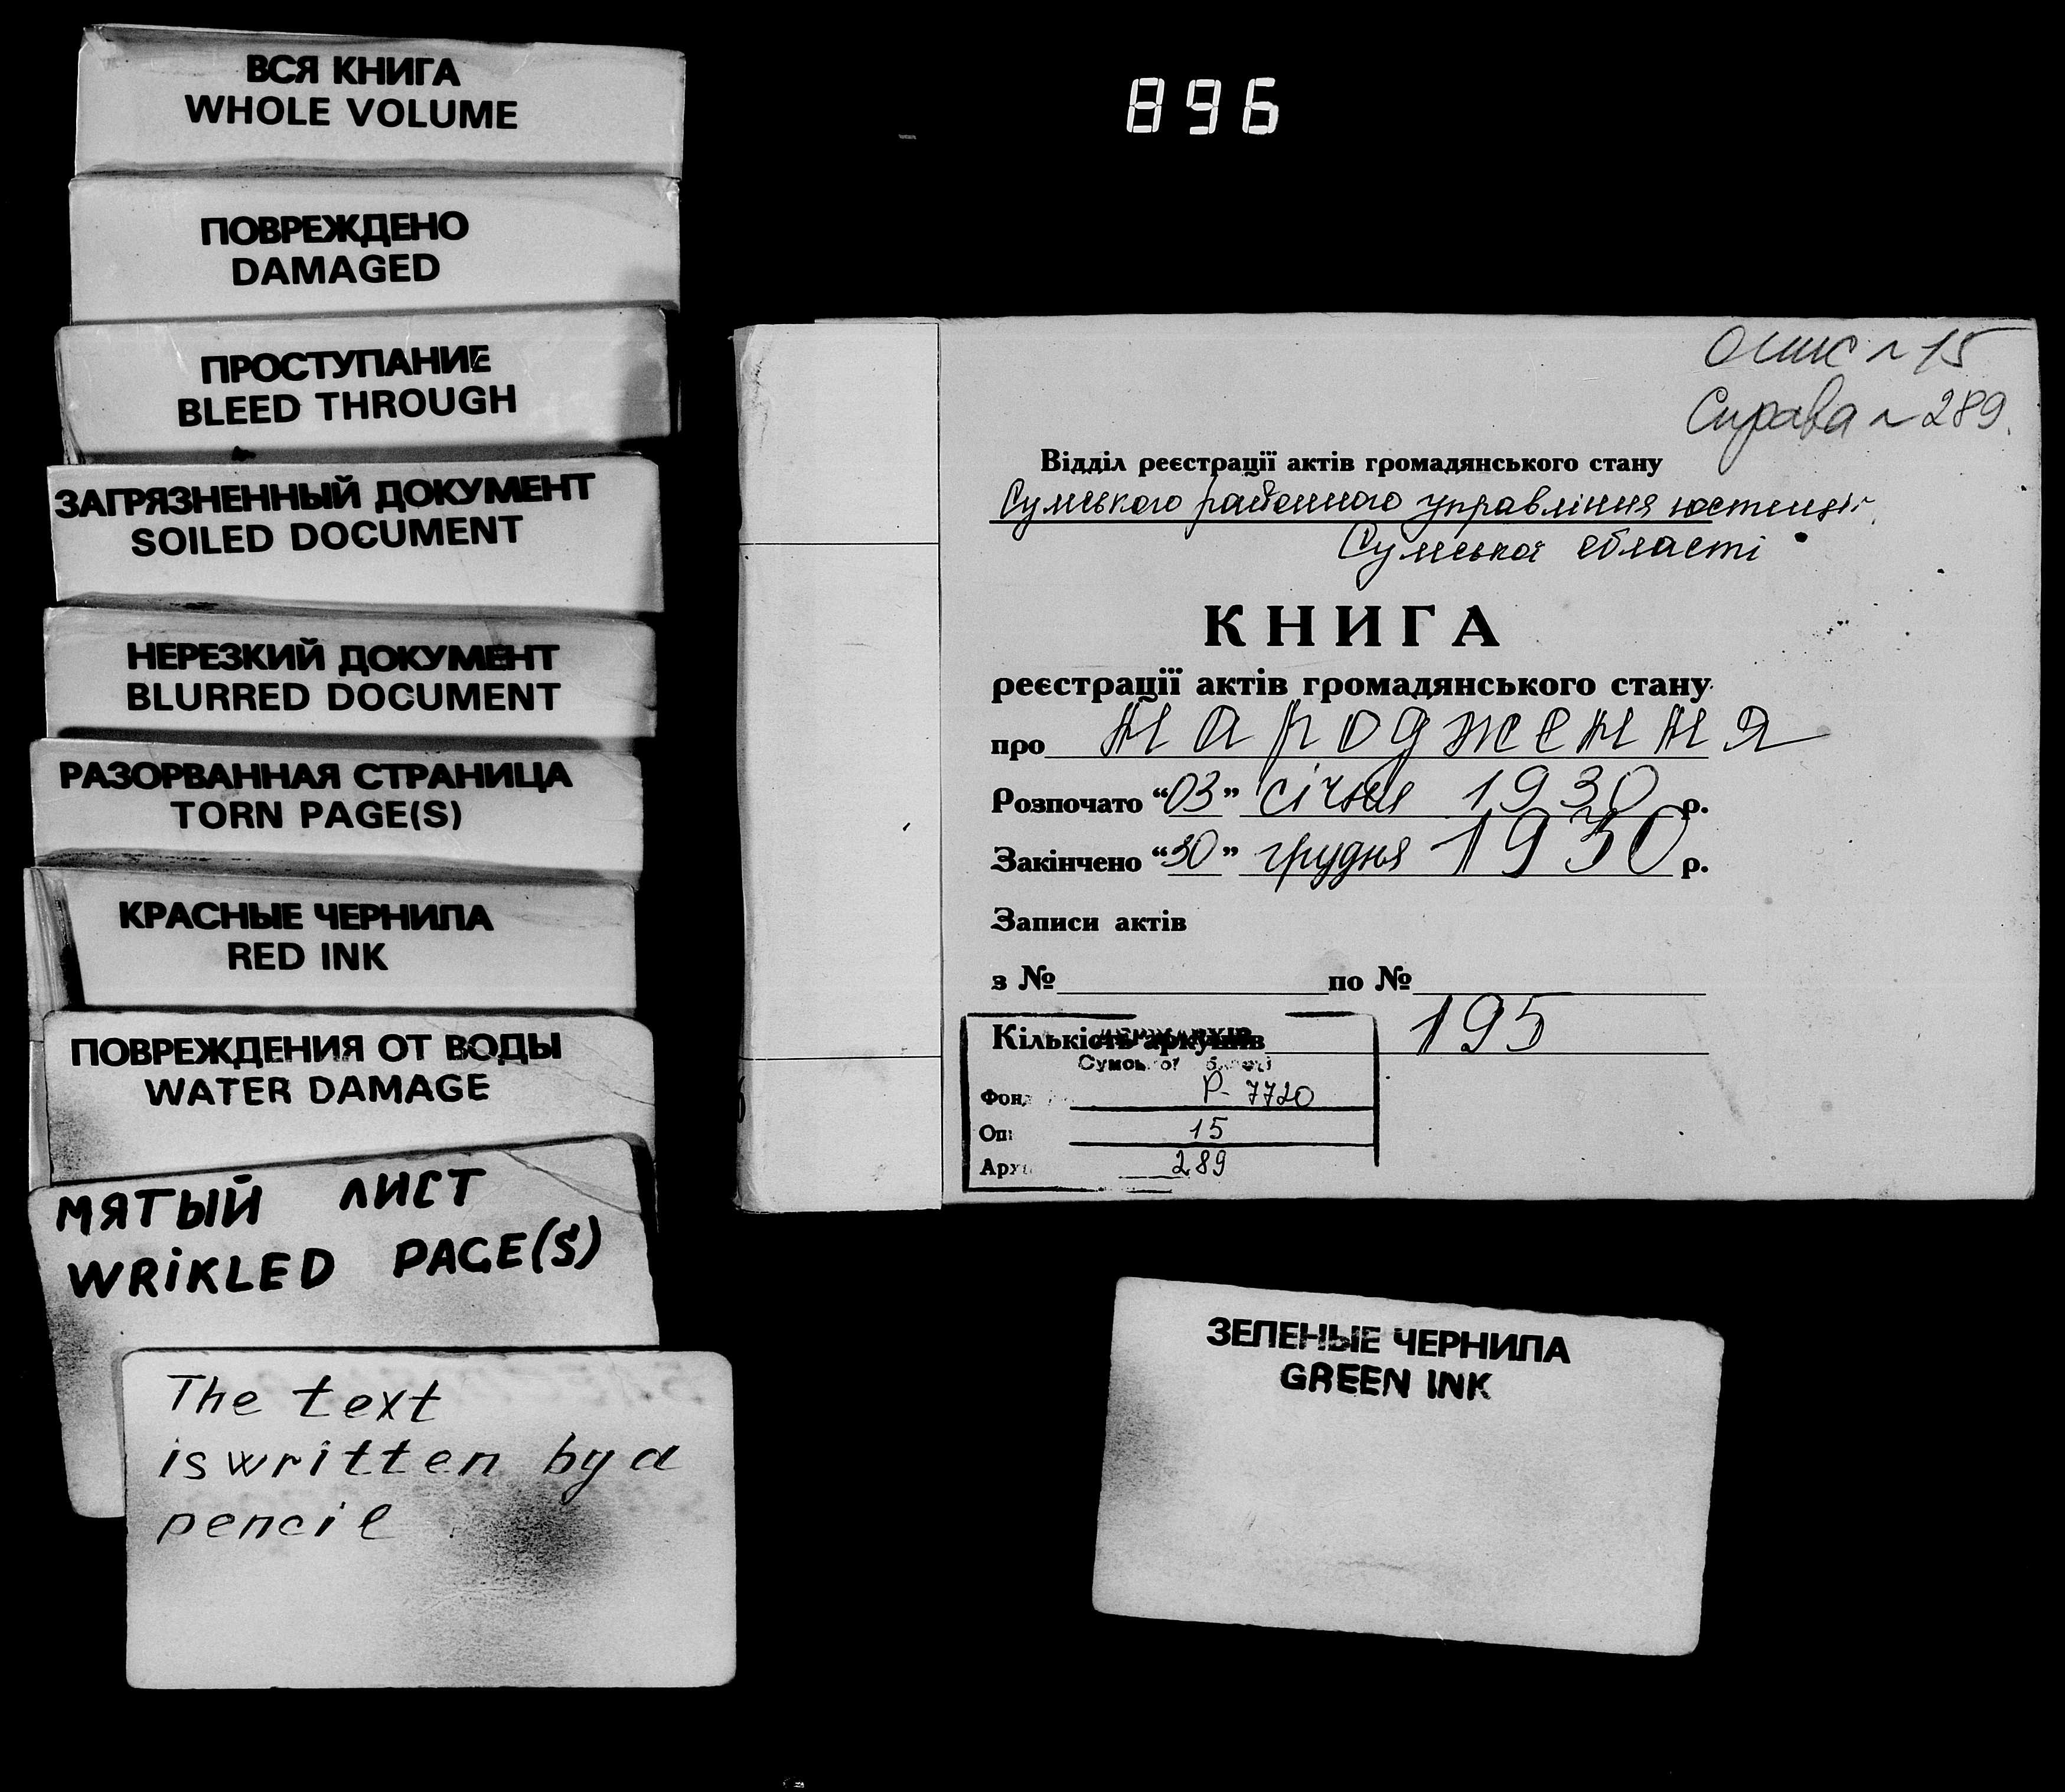 ВСЯ КНИГА
WHOLE VOLUME
ПОВРЕЖДЕНО
DAMAGED
ПРОСТУПАНИЕ
BLEED THROUGH
ЗАГРЯЗНЕННЫЙ ДОКУМЕНТ
SOILED DOCUMENT
НЕРЕЗКИЙ ДОКУМЕНТ
BLURRED DOCUMENT
РАЗОРВАННАЯ СТРАНИЦА
TORN PAGE(S)
КРАСНЫЕ ЧЕРНИЛА
RED INK
ПОВРЕЖДЕНИЯ ОТ ВОДЫ
WATER DAMAGE
МЯТЫЙ ЛИСТ
WRIKLED PAGE(S)
The text
is written by a
pencil
896
Опис ~ 15
Справа ~ 289.
Відділ реєстрації актів громадянського стану
Сумського районного управління юстиції
Сумської області
КНИГА
реєстрації актів громадянського стану
про народження
Розпочато “03” січня 1930 р.
Закінчено “30” грудня 1930 р.
Записи актів
з № по №
Кількість аркушів 195
Фонд Р-7720
Оп 15
289
ЗЕЛЕНЫЕ ЧЕРНИЛА
GREEN INK